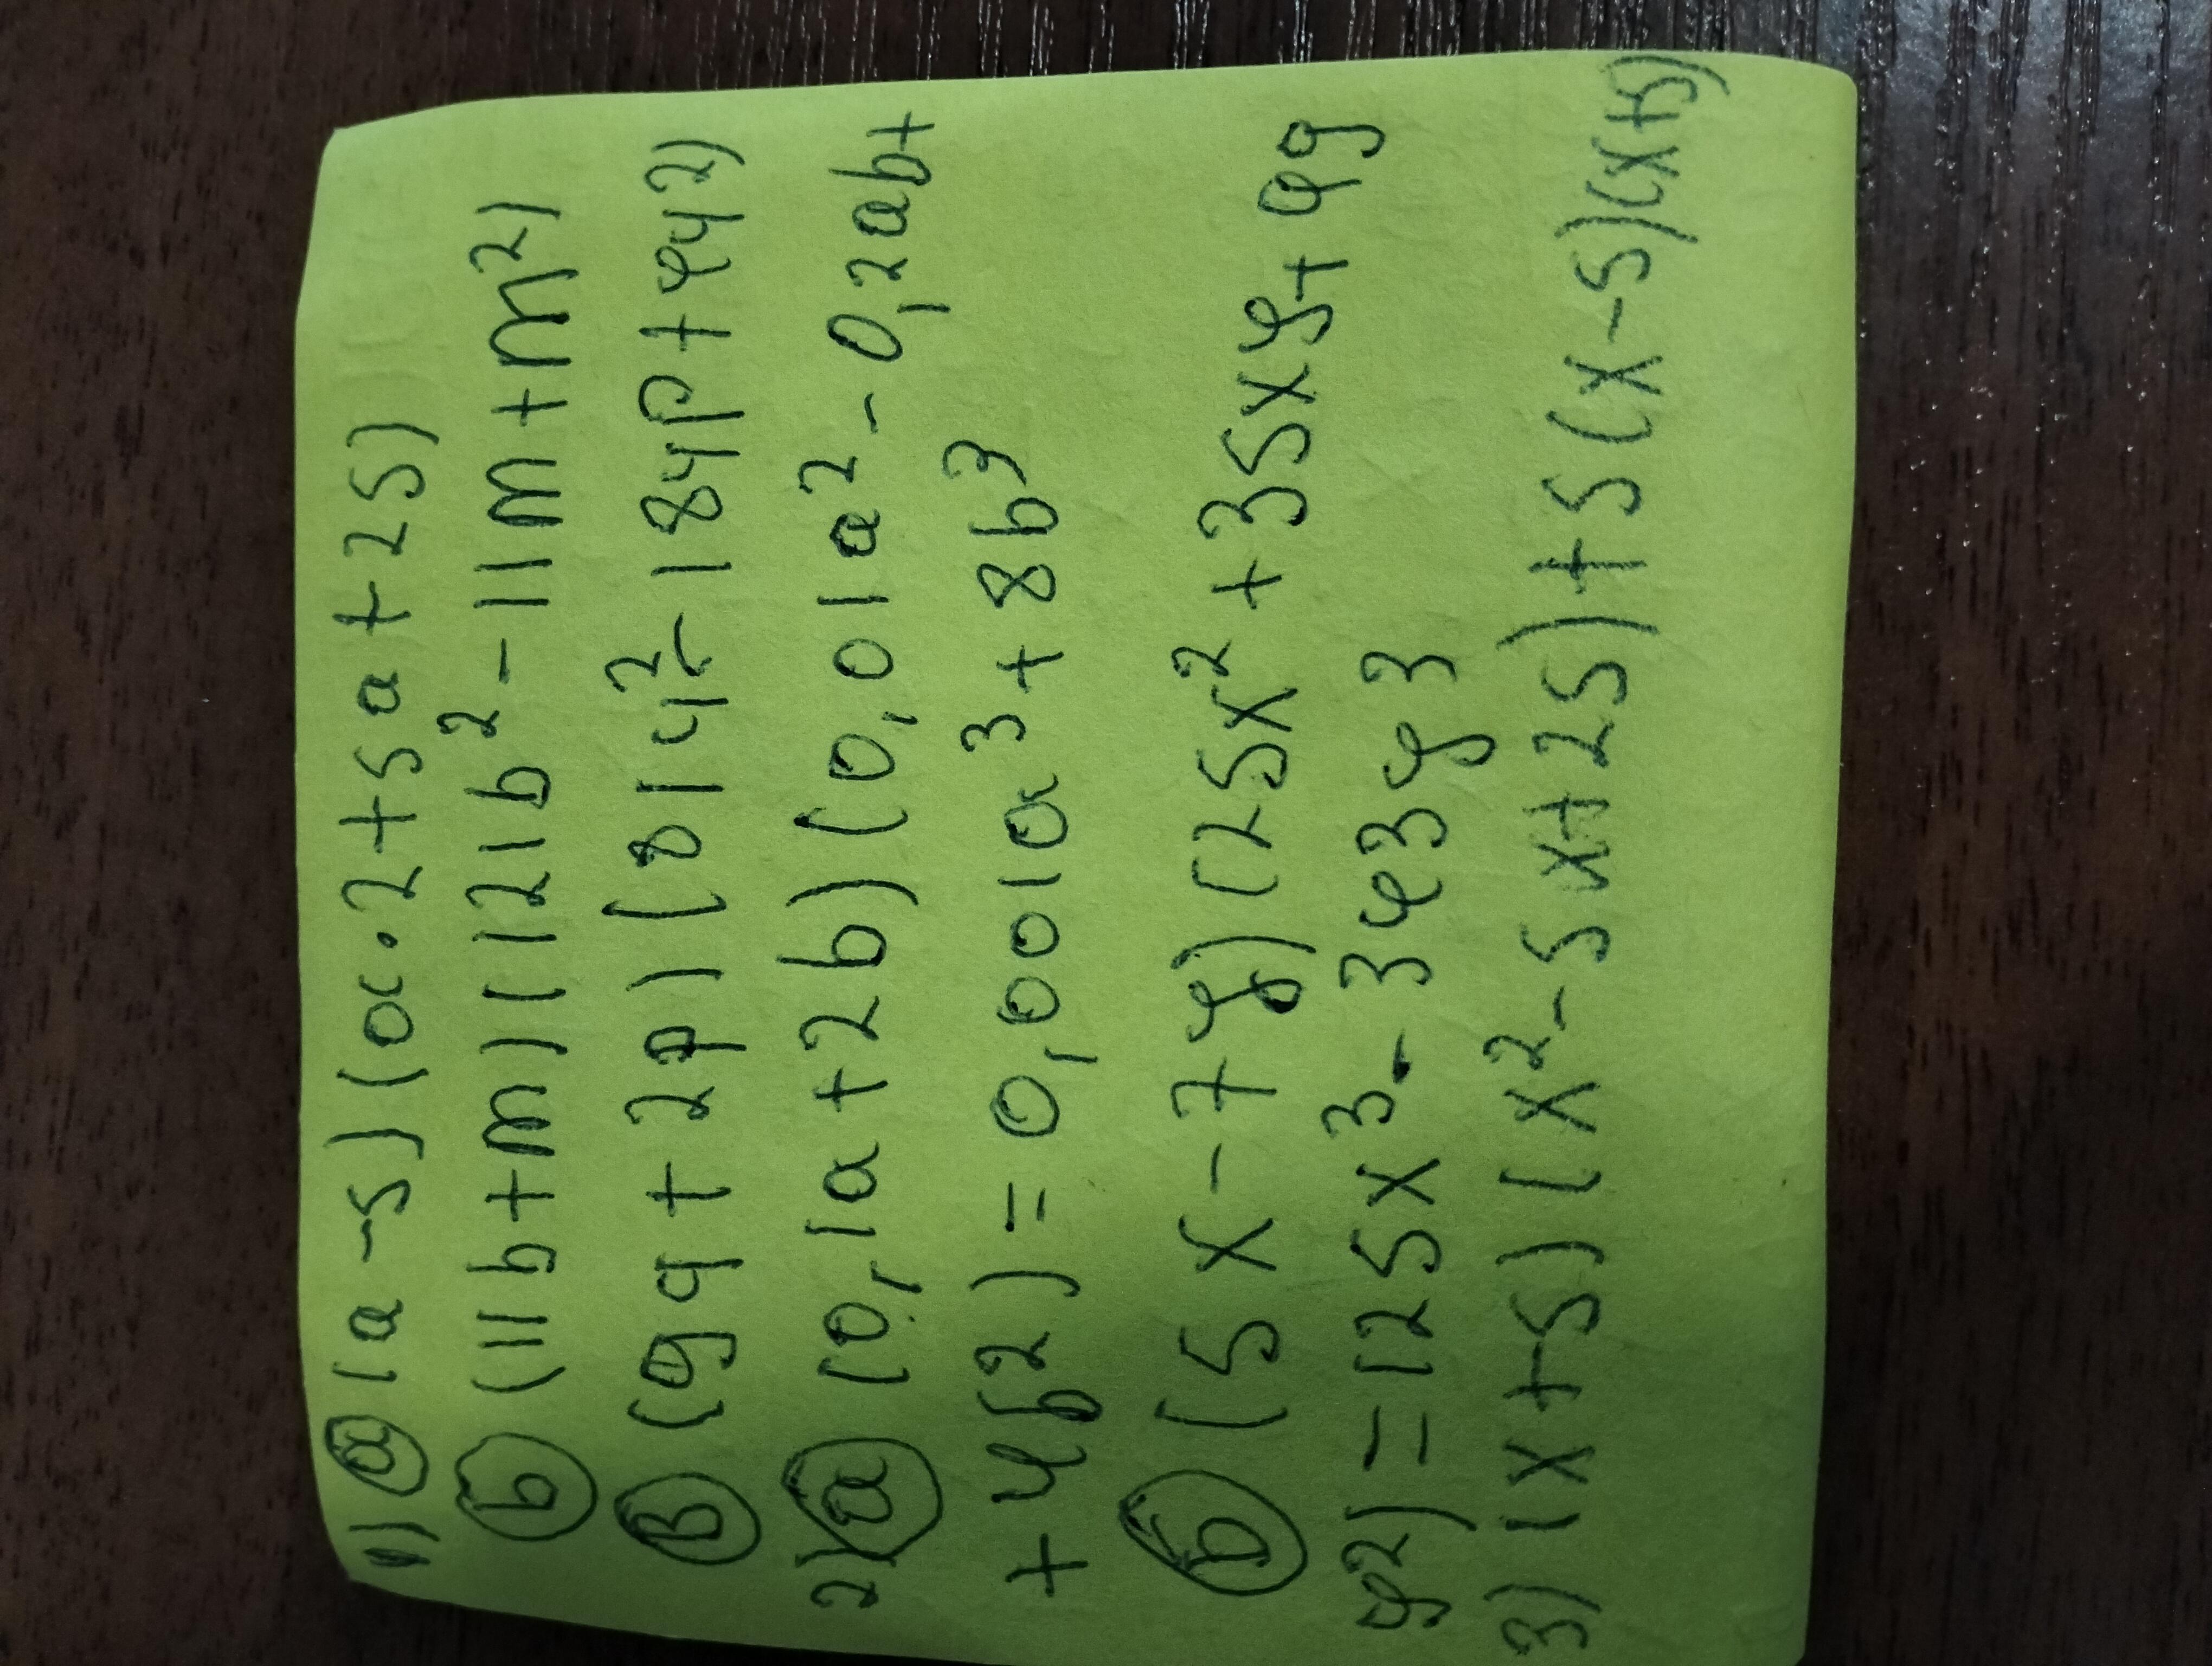 1) а (a-5)(a·2+5a+25)
b (11b+m)(121b²-11m+m²)
В (9q+2p)(81q²-18qp+4q2)
2) а (0,1a+2b)(0,01a²-0,2ab+
+4b2)=0,001a³+8b³
b (5x-7y)(25x²+35xy+49
y2)=125x³-343y3
3) (x+5)(x²-5x+25)+5(x-5)(x+5)